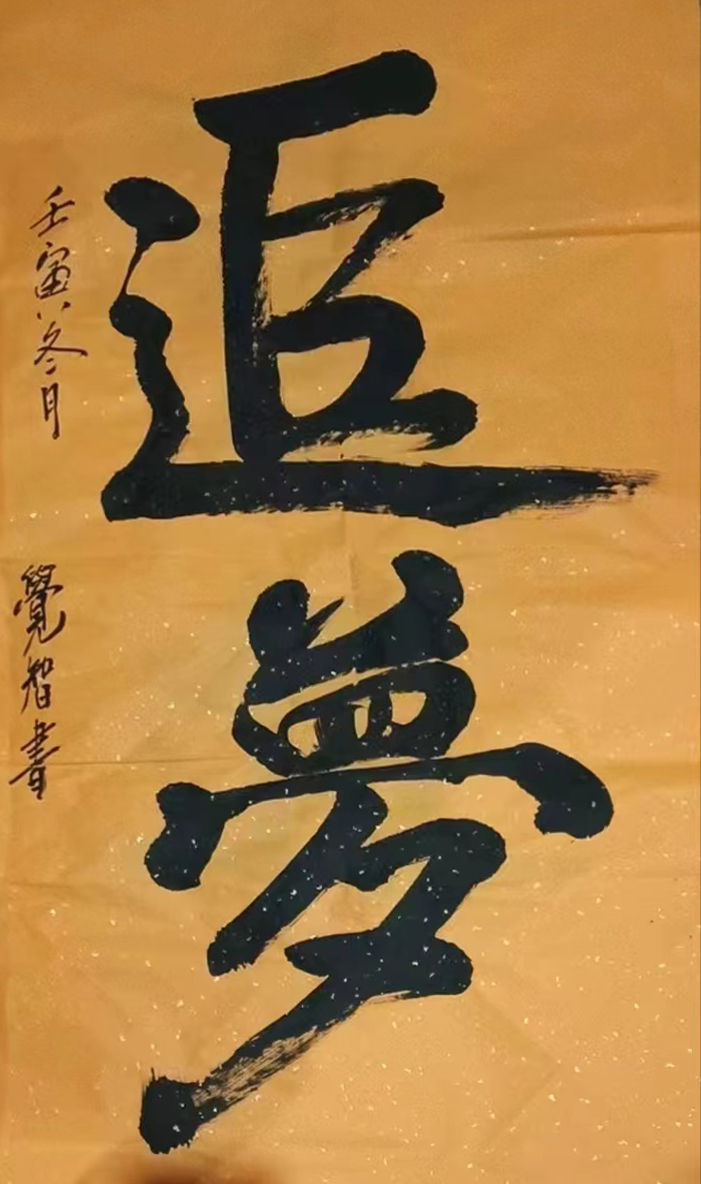 追夢
壬寅冬月
覺智書